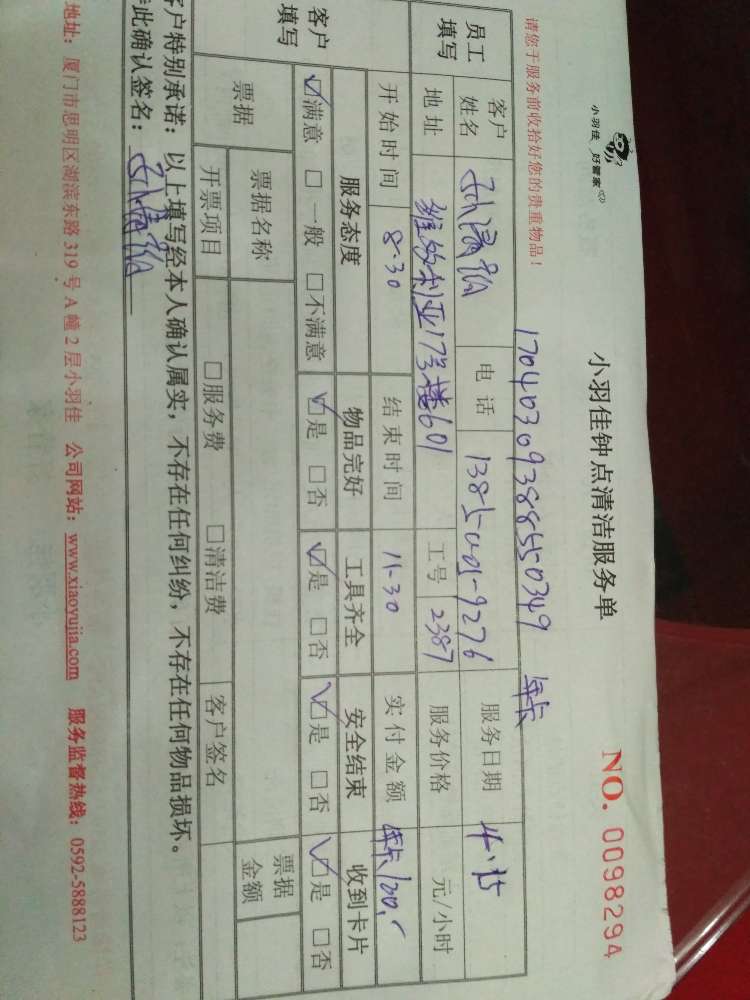 小羽佳 好管家
小羽佳钟点清洁服务单
NO. 0098294
请您于服务前收拾好您的贵重物品！
17040309388550349 年卡
员工填写
客户姓名 电话 服务日期 4.15
地址 维多利亚17号楼601 工号 2387 服务价格 元/小时
开始时间 8-30 结束时间 11-30 实付金额 年卡100
客户填写
服务态度 物品完好 工具齐全 安全结束 收到卡片
☑满意 □一般 □不满意 ☑是 □否 ☑是 □否 ☑是 □否 ☑是 □否
票据 票据名称 票据金额
开票项目 □服务费 □清洁费 客户签名
客户特别承诺：以上填写经本人确认属实，不存在任何纠纷，不存在任何物品损坏。
此确认签名：
地址：厦门市思明区湖滨东路319号A幢2层小羽佳 公司网站：www.xiaoyujia.com 服务监督热线：0592-5888123